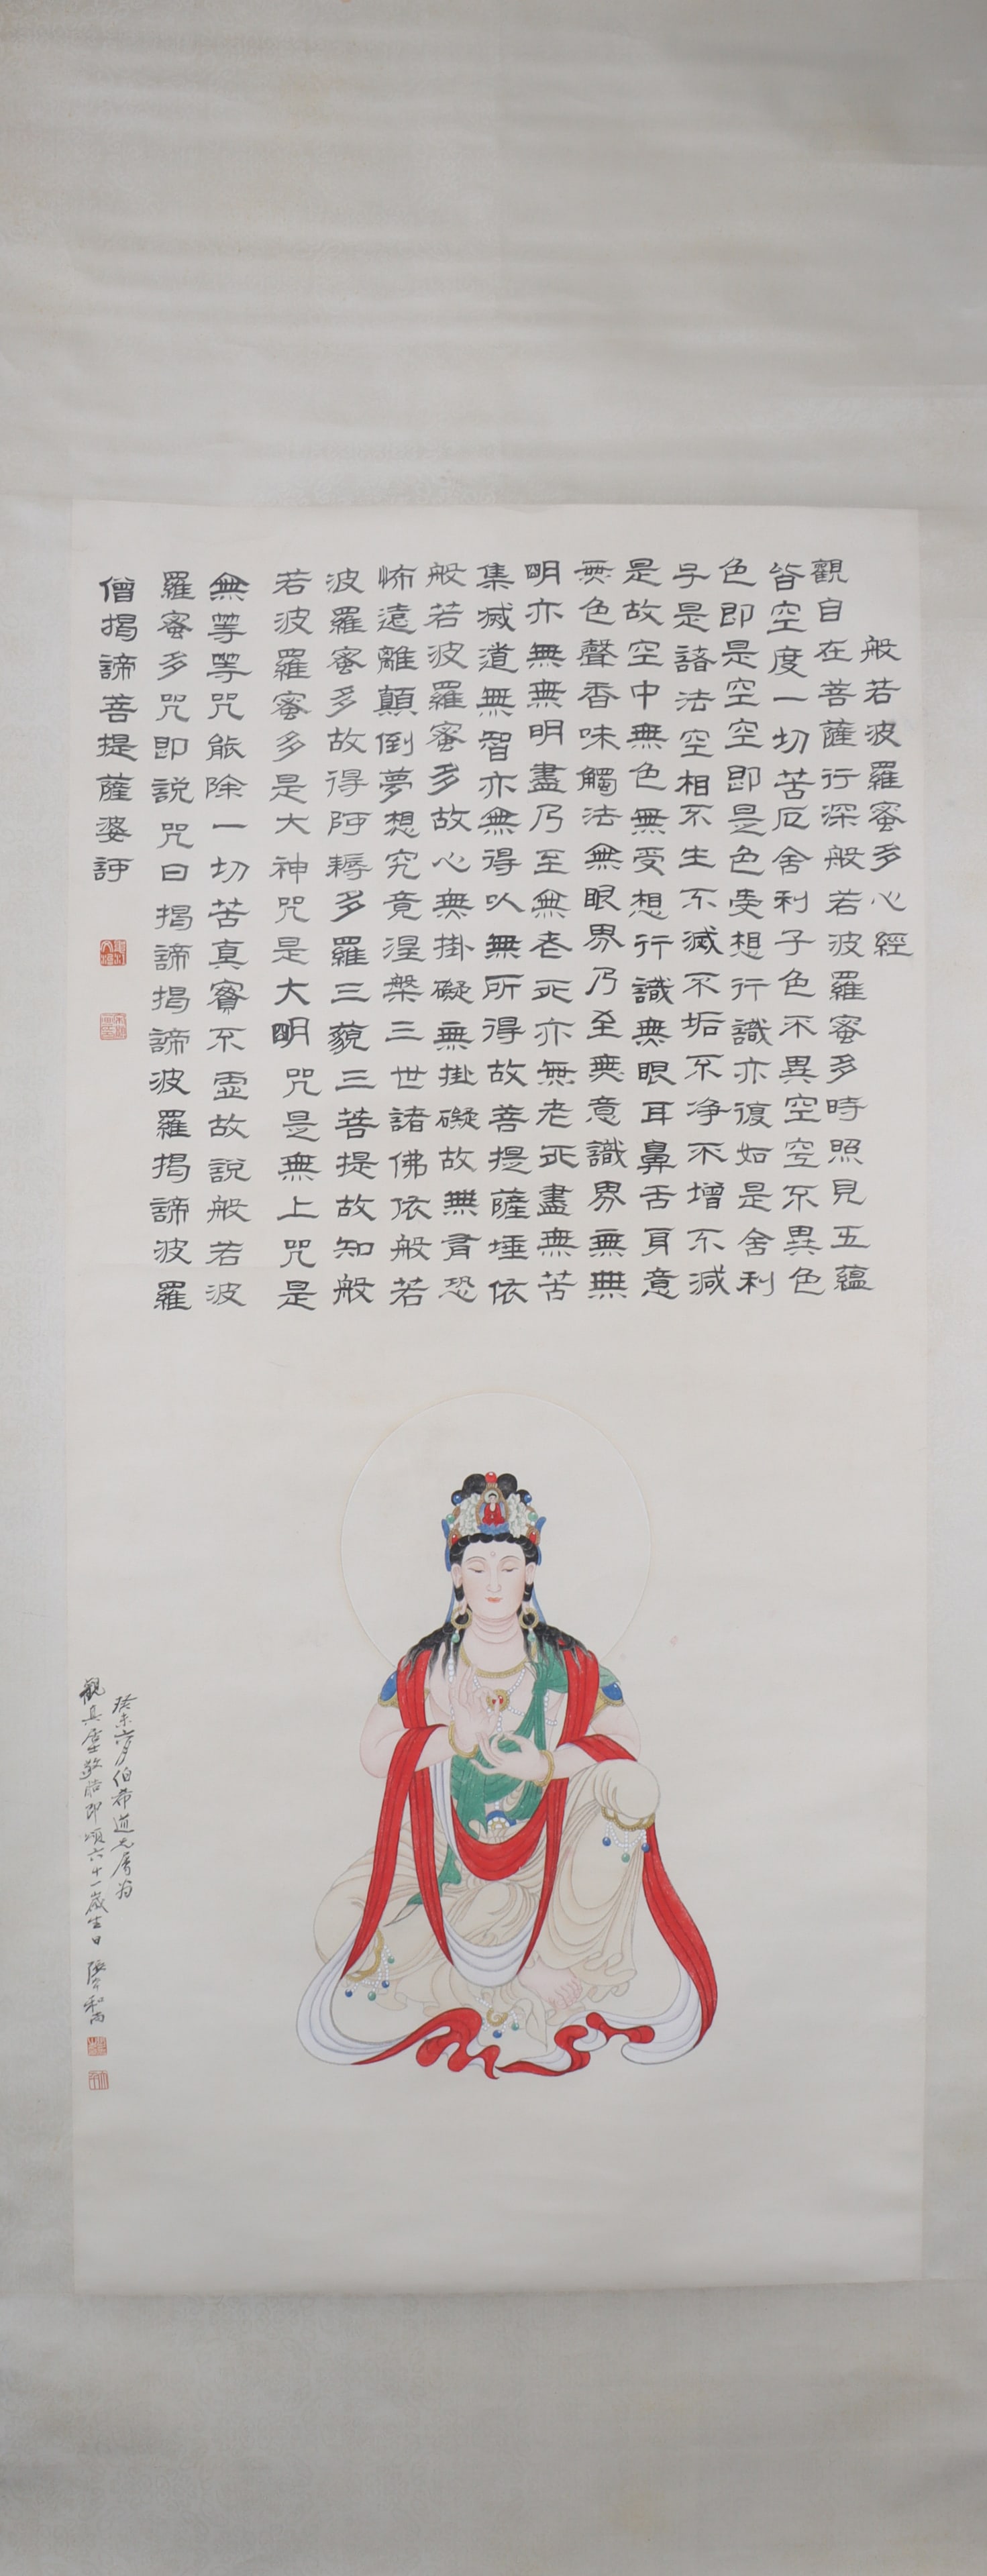 般若波羅蜜多心經
觀自在菩薩行深般若波羅蜜多時照見五蘊
皆空度一切苦厄舍利子色不異空空不異色
色即是空空即是色受想行識亦復如是舍利
子是諸法空相不生不滅不垢不净不增不減
是故空中無色無受想行識無眼耳鼻舌身意
無色聲香味觸法無眼界乃至無意識界無無
明亦無無明盡乃至無老死亦無老死盡無苦
集滅道無智亦無得以無所得故菩提薩埵依
般若波羅蜜多故心無掛礙無掛礙故無有恐
怖遠離顛倒夢想究竟涅槃三世諸佛依般若
波羅蜜多故得阿耨多羅三藐三菩提故知般
若波羅蜜多是大神咒是大明咒是無上咒是
無等等咒能除一切苦真實不虛故說般若波
羅蜜多咒即說咒曰揭諦揭諦波羅揭諦波羅
僧揭諦菩提薩婆訶
癸未伯希道兄屬為
觀敬即頌六十一歲生日